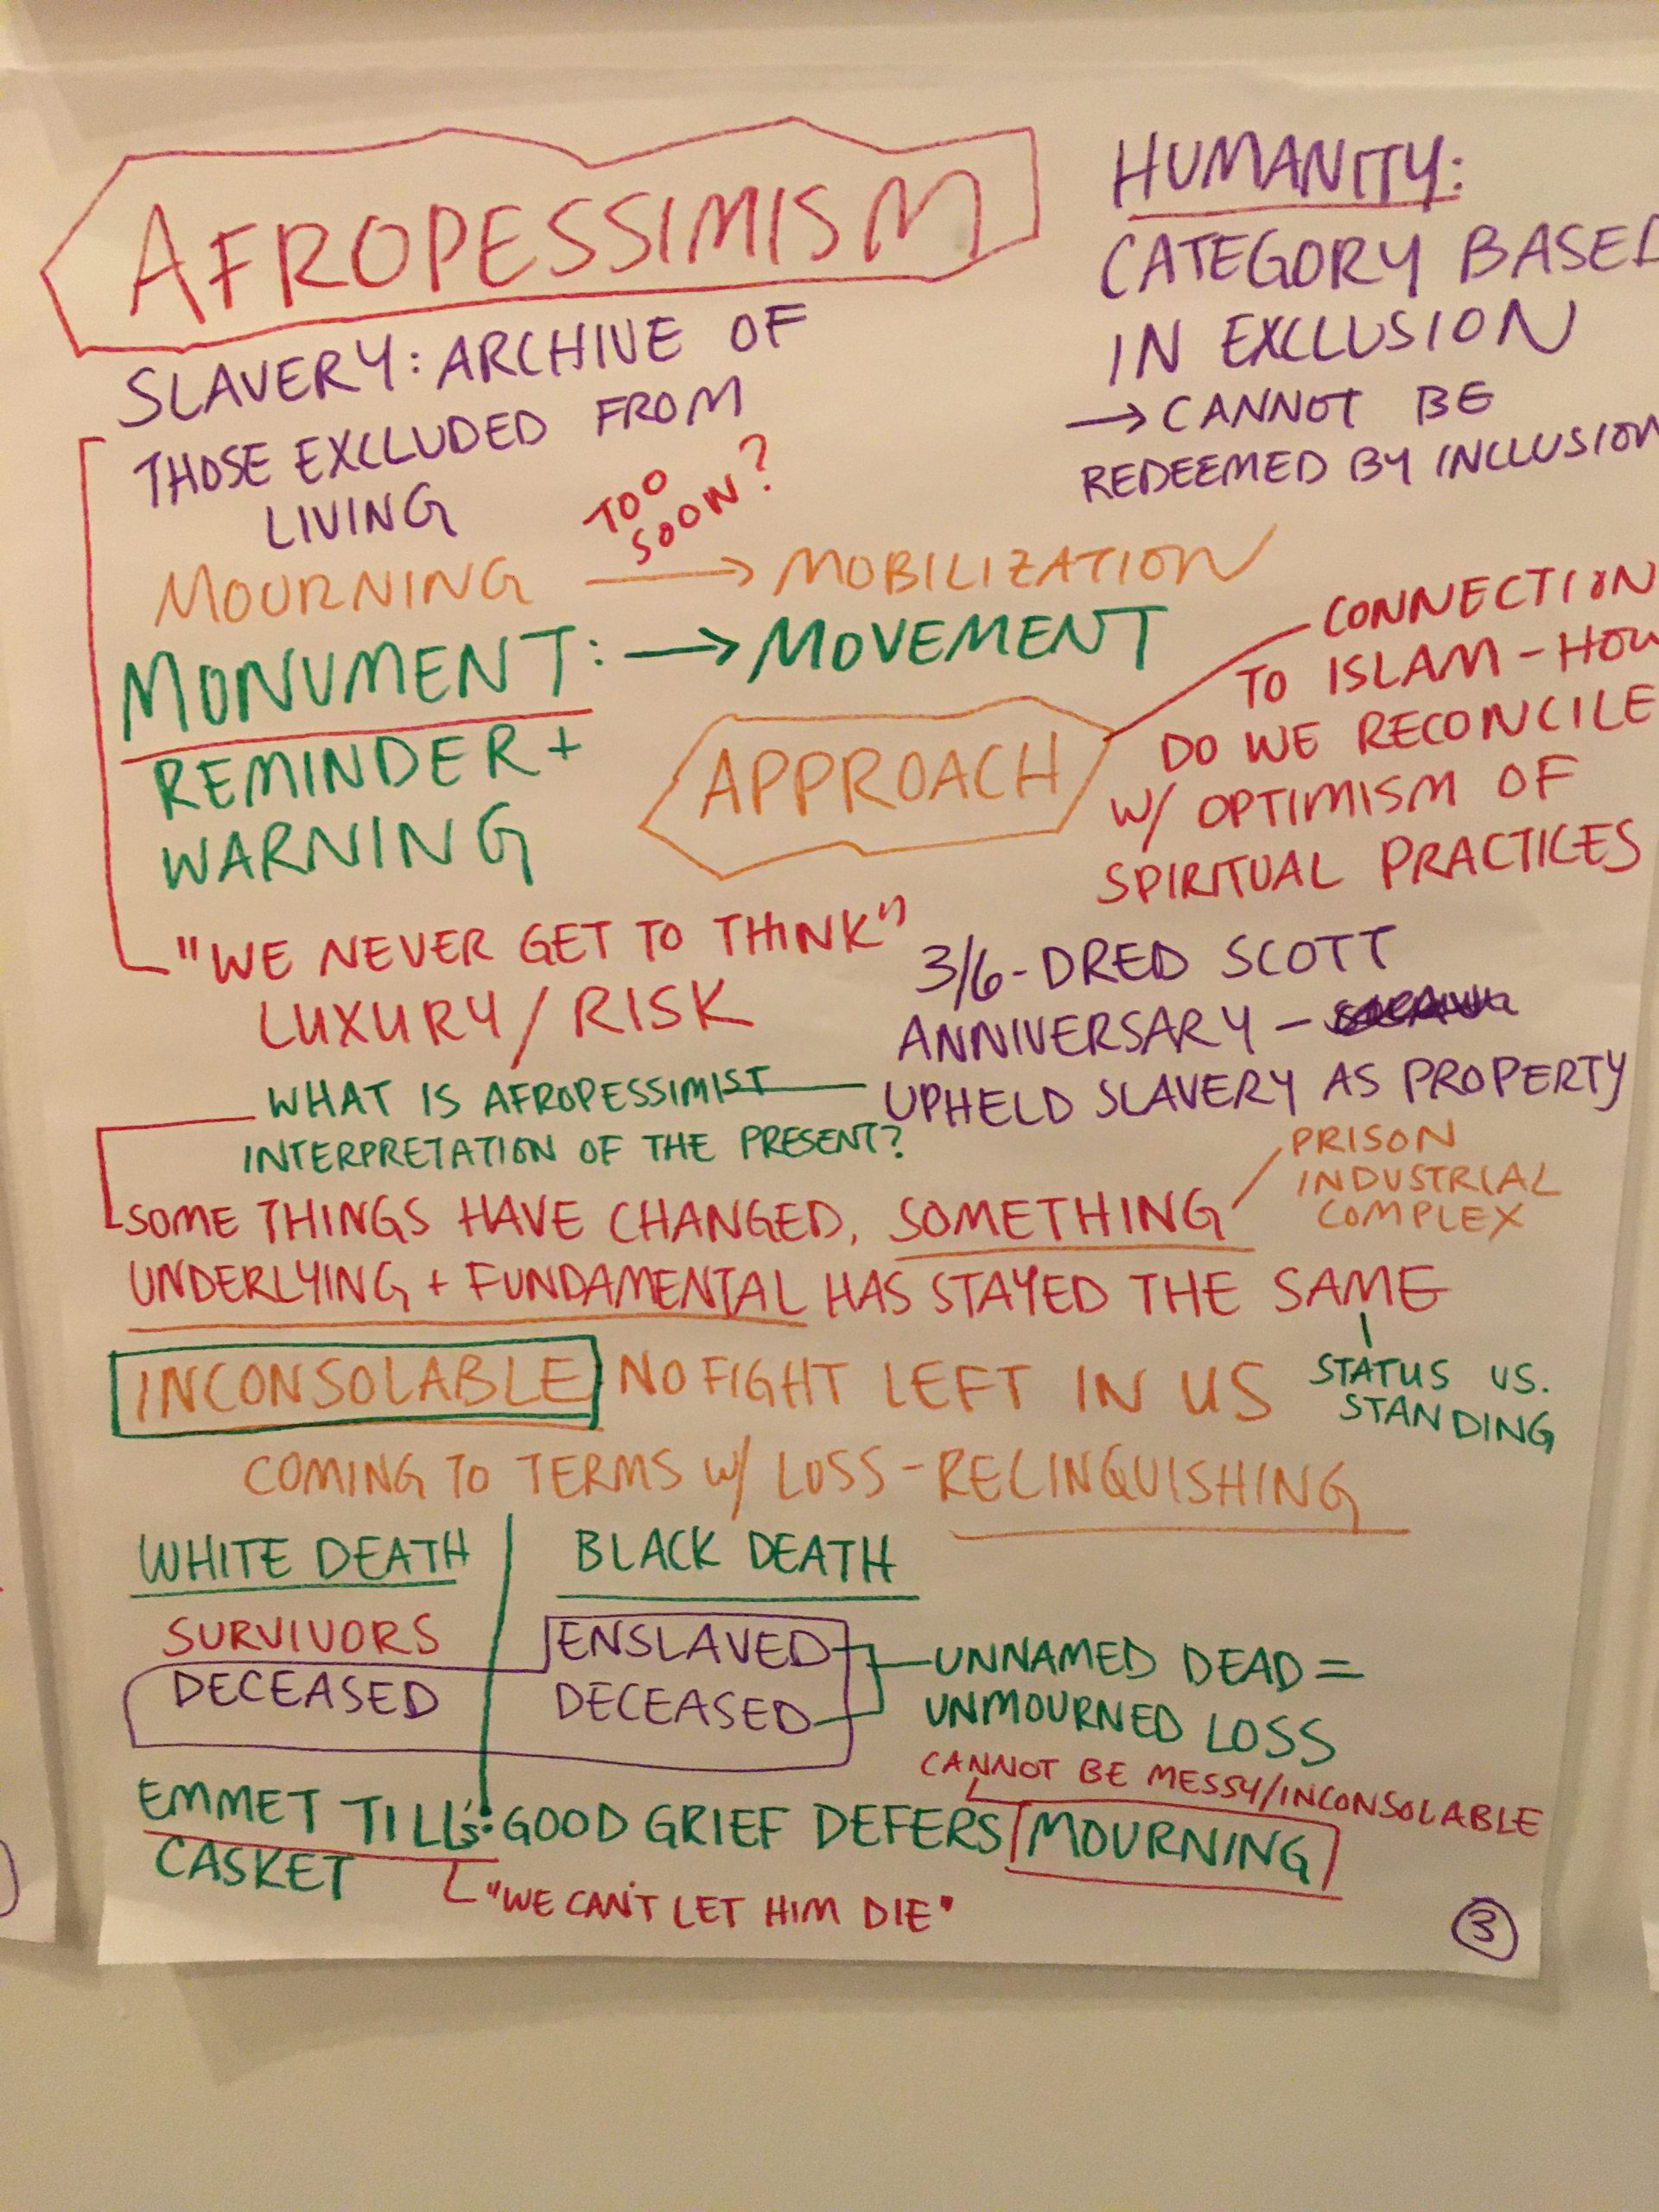 AFROPESSIMISM
SLAVERY: ARCHIVE OF
THOSE EXCLUDED FROM
LIVING
HUMANITY:
CATEGORY BASED
IN EXCLUSION
→ CANNOT BE
REDEEMED BY INCLUSION
TOO
SOON?
MOURNING → MOBILIZATION
MONUMENT: → MOVEMENT
REMINDER +
WARNING
APPROACH
CONNECTION
TO ISLAM - HOW
DO WE RECONCILE
W/ OPTIMISM OF
SPIRITUAL PRACTICES
"WE NEVER GET TO THINK"
LUXURY / RISK
3/6 - DRED SCOTT
ANNIVERSARY -
UPHELD SLAVERY AS PROPERTY
WHAT IS AFROPESSIMIST
INTERPRETATION OF THE PRESENT?
PRISON
INDUSTRIAL
COMPLEX
SOME THINGS HAVE CHANGED, SOMETHING
UNDERLYING + FUNDAMENTAL HAS STAYED THE SAME
STATUS VS.
STANDING
INCONSOLABLE NO FIGHT LEFT IN US
COMING TO TERMS W/ LOSS - RELINQUISHING
WHITE DEATH
SURVIVORS
DECEASED
BLACK DEATH
ENSLAVED
DECEASED
UNNAMED DEAD =
UNMOURNED LOSS
CANNOT BE MESSY/INCONSOLABLE
EMMET TILL'S: GOOD GRIEF DEFERS MOURNING
CASKET
"WE CAN'T LET HIM DIE"
3